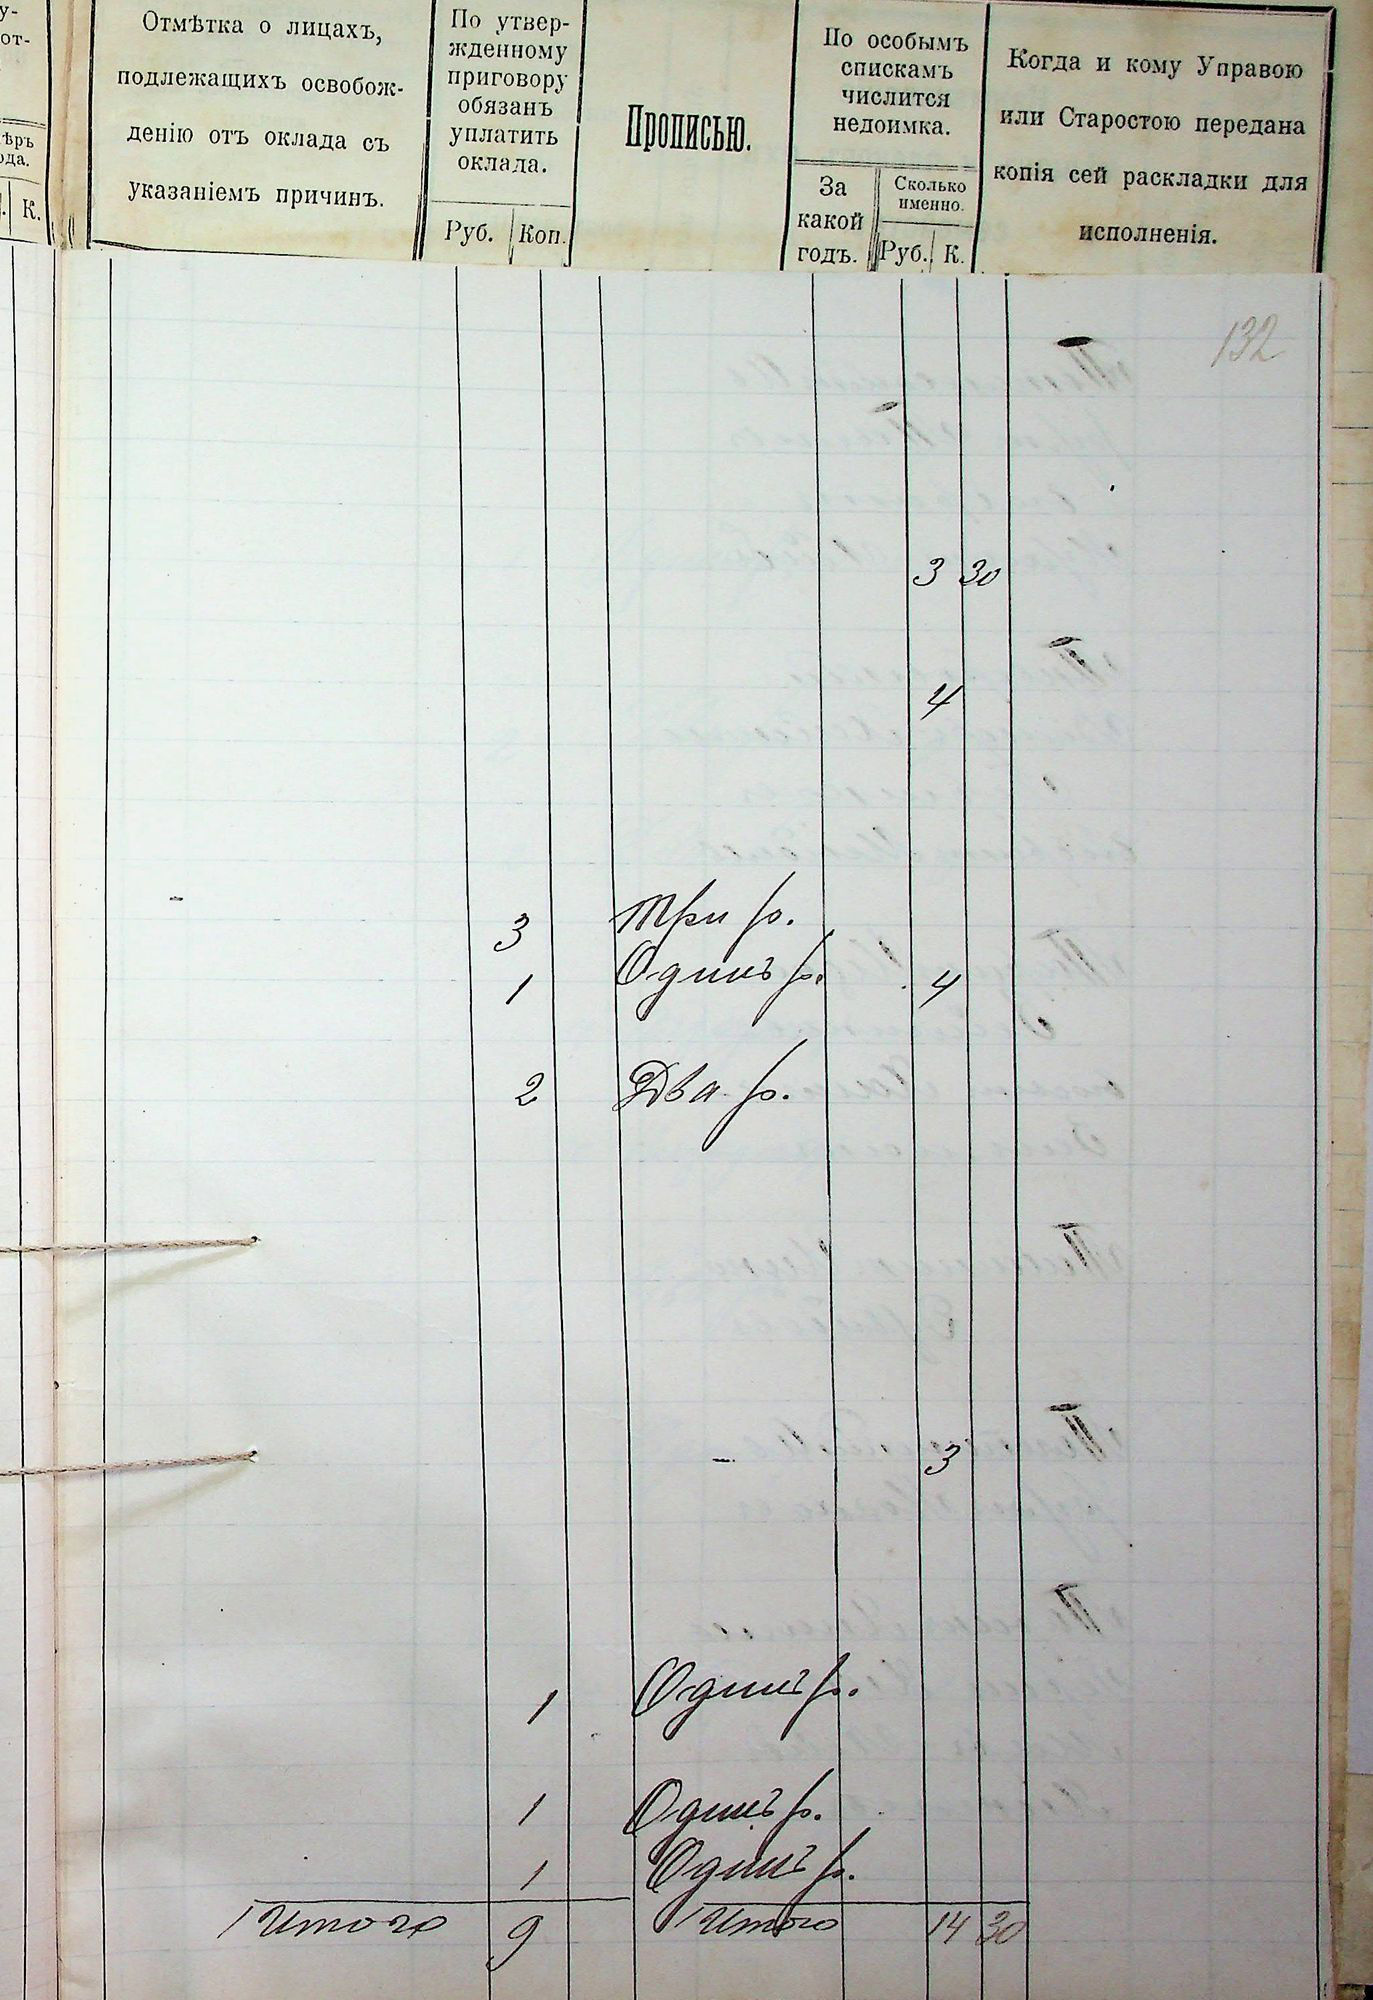 у-
от-
ѣръ
ода.
К.
Отмѣтка о лицахъ,
подлежащихъ освобож-
денію отъ оклада съ
указаніемъ причинъ.
По утвер-
жденному
приговору
обязанъ
уплатить
оклада.
Руб. Коп.
Прописью.
По особымъ
спискамъ
числится
недоимка.
За
какой
годъ.
Сколько
именно.
Руб. К.
Когда и кому Управою
или Старостою передана
копія сей раскладки для
исполненія.
132
3 30
4
3 Три р.
1 Одинъ р. 4
2 Два р.
- 3
1 Одинъ р.
1 Одинъ р.
1 Одинъ р.
Итого 9 Итого 14 30